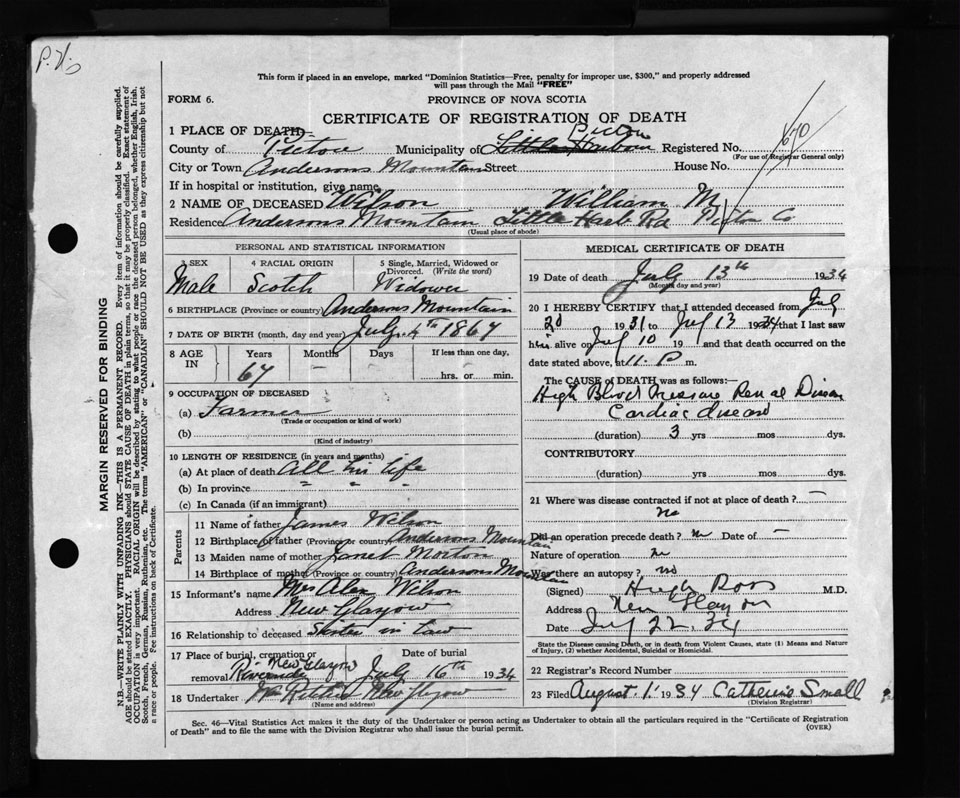 This form if placed in an envelope, marked "Dominion Statistics—Free, penalty for improper use, $300," and properly addressed
will pass through the Mail "FREE"
FORM 6. PROVINCE OF NOVA SCOTIA
CERTIFICATE OF REGISTRATION OF DEATH
1 PLACE OF DEATH—
County of Pictou Municipality of Little Harbour Pictou Registered No. 670
(For use of Registrar General only)
City or Town Andersons Mountain Street House No.
If in hospital or institution, give name
2 NAME OF DECEASED Wilson William M
Residence Andersons Mountain Little Harb Rd Pictou Co
(Usual place of abode)
PERSONAL AND STATISTICAL INFORMATION
3 SEX 4 RACIAL ORIGIN 5 Single, Married, Widowed or Divorced. (Write the word)
Male Scotch Widower
6 BIRTHPLACE (Province or country) Andersons Mountain
7 DATE OF BIRTH (month, day and year) July 4th 1867
8 AGE IN Years Months Days If less than one day,
67 — — hrs. or min.
9 OCCUPATION OF DECEASED
(a) Farmer
(Trade or occupation or kind of work)
(b)
(Kind of industry)
10 LENGTH OF RESIDENCE (in years and months)
(a) At place of death All his life
(b) In province " " "
(c) In Canada (if an immigrant)
Parents
11 Name of father James Wilson
12 Birthplace of father (Province or country) Andersons Mountain
13 Maiden name of mother Janet Morton
14 Birthplace of mother (Province or country) Andersons Mountain
15 Informant's name Mrs Alex Wilson
Address New Glasgow
16 Relationship to deceased Sister in law
17 Place of burial, cremation or removal Riverside New Glasgow Date of burial July 16th 1934
18 Undertaker New Glasgow
(Name and address)
MEDICAL CERTIFICATE OF DEATH
19 Date of death July 13th 1934
(Month day and year)
20 I HEREBY CERTIFY that I attended deceased from July
20 1931 to July 13 1934 that I last saw
him alive on July 10 19 and that death occurred on the
date stated above, at 11. P m.
The CAUSE of DEATH was as follows:—
High Blood Pressure Renal Disease
Cardiac disease
(duration) 3 yrs mos dys.
CONTRIBUTORY
(duration) yrs mos dys.
21 Where was disease contracted if not at place of death? —
no
Did an operation precede death? no Date of —
Nature of operation no
Was there an autopsy? no
(Signed) Hugh Ross M.D.
Address New Glasgow
Date July 22. 34
State the Disease causing Death, or in death from Violent Causes, state (1) Means and Nature
of Injury, (2) whether Accidental, Suicidal or Homicidal.
22 Registrar's Record Number
23 Filed August. 1. 1934 Catherine Small
(Division Registrar)
Sec. 46—Vital Statistics Act makes it the duty of the Undertaker or person acting as Undertaker to obtain all the particulars required in the "Certificate of Registration
of Death" and to file the same with the Division Registrar who shall issue the burial permit. (OVER)
MARGIN RESERVED FOR BINDING
N.B.—WRITE PLAINLY WITH UNFADING INK—THIS IS A PERMANENT RECORD. Every item of information should be carefully supplied.
AGE should be stated EXACTLY. PHYSICIANS should STATE CAUSE OF DEATH in plain terms, so that it may be properly classified. Exact statement of
OCCUPATION is very important. RACIAL ORIGIN will be described by stating to what people or race the deceased person belonged, whether English, Irish,
Scotch, French, German, Russian, Ruthenian, etc. The terms "AMERICAN" or "CANADIAN" SHOULD NOT BE USED as they express citizenship but not
a race or people. Fee instructions on back of Certificate.